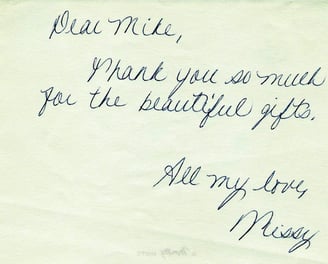 Dear Mike,
Thank you so much
for the beautiful gifts.
All my love,
Missy